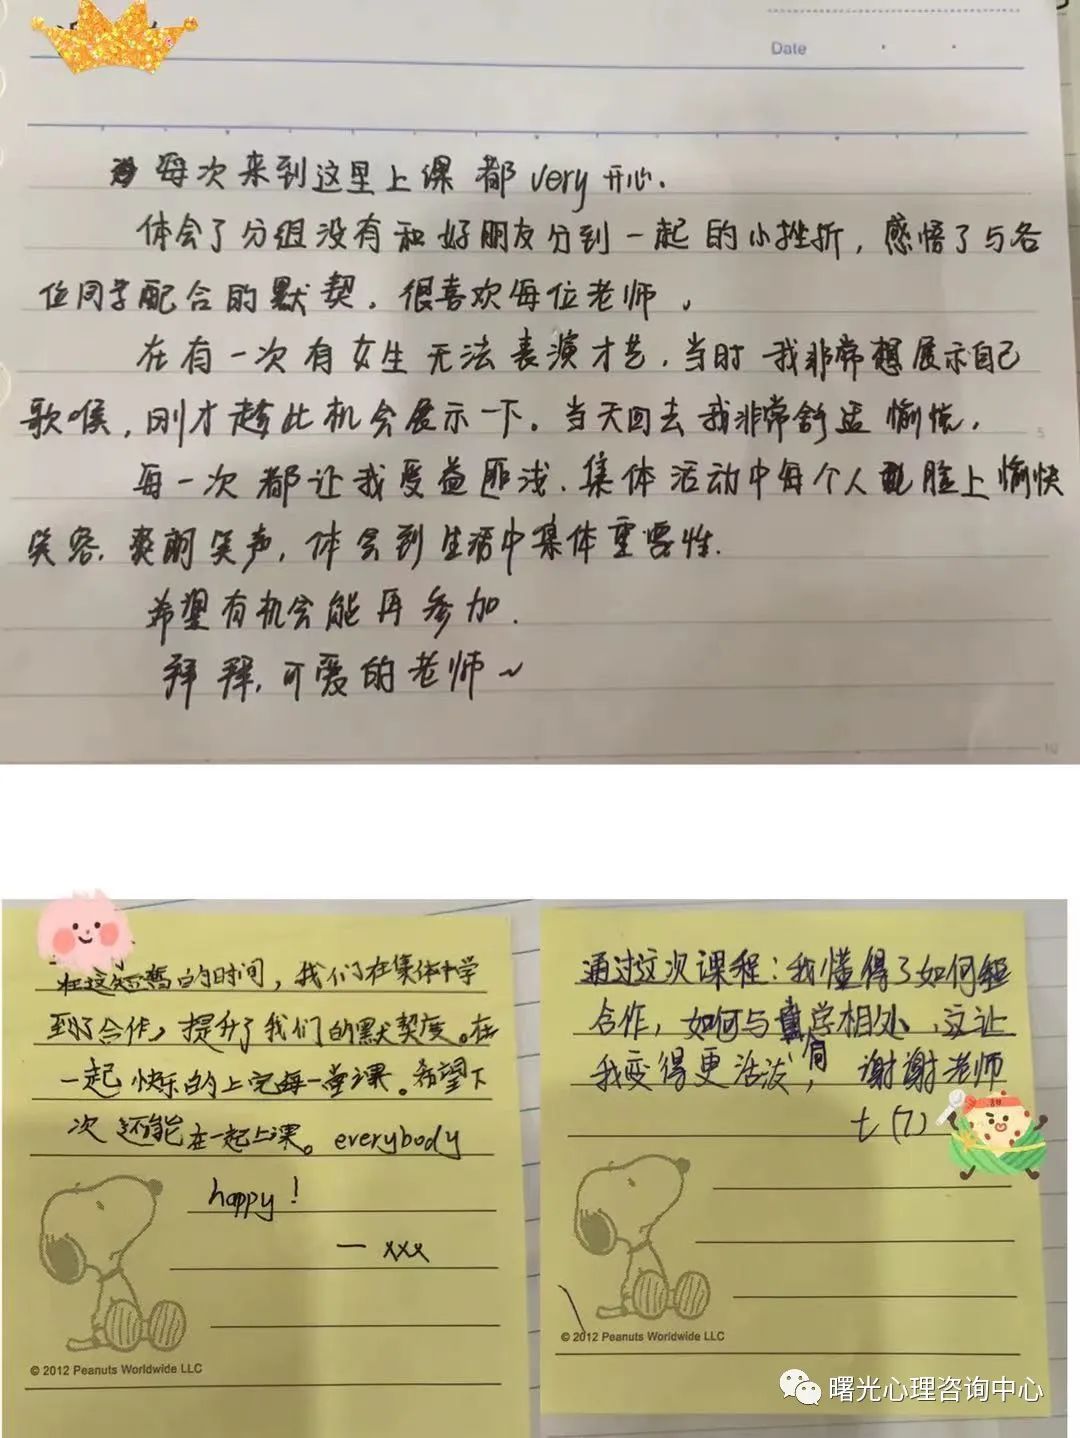 Date
每次来到这里上课都very开心.
体会了分组没有和好朋友分到一起的小挫折，感悟了与各
位同学配合的默契.很喜欢每位老师.
在有一次有女生无法表演才艺.当时我非常想展示自己
歌喉,刚才趁此机会展示一下。当天回去我非常舒适愉悦.
每一次都让我受益匪浅.集体活动中每个人脸上愉快
笑容.爽朗笑声,体会到生活中集体重要性.
希望有机会能再参加.
拜拜,可爱的老师~
5
10
在这短暂的时间，我们在集体中学
到了合作，提升了我们的默契度。在
一起快乐的上完每一堂课。希望下
次还能在一起上课。everybody
happy!
— xxx
© 2012 Peanuts Worldwide LLC
通过这次课程:我懂得了如何
合作，如何与同学相处，这让
我变得更活泼，谢谢老师
t(7)
© 2012 Peanuts Worldwide LLC
曙光心理咨询中心